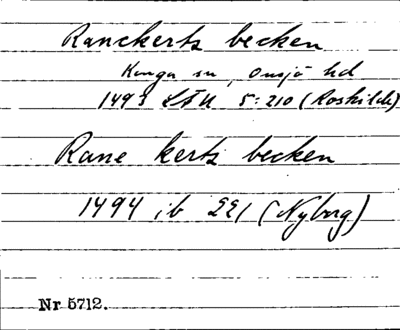 Ranckertz becken
Konga sn, Onsjö hd
1493 LÅU 5:210 (Roskilde)
Rane kertz becken
1494 ib 221 (Nyborg)
Nr 5712.